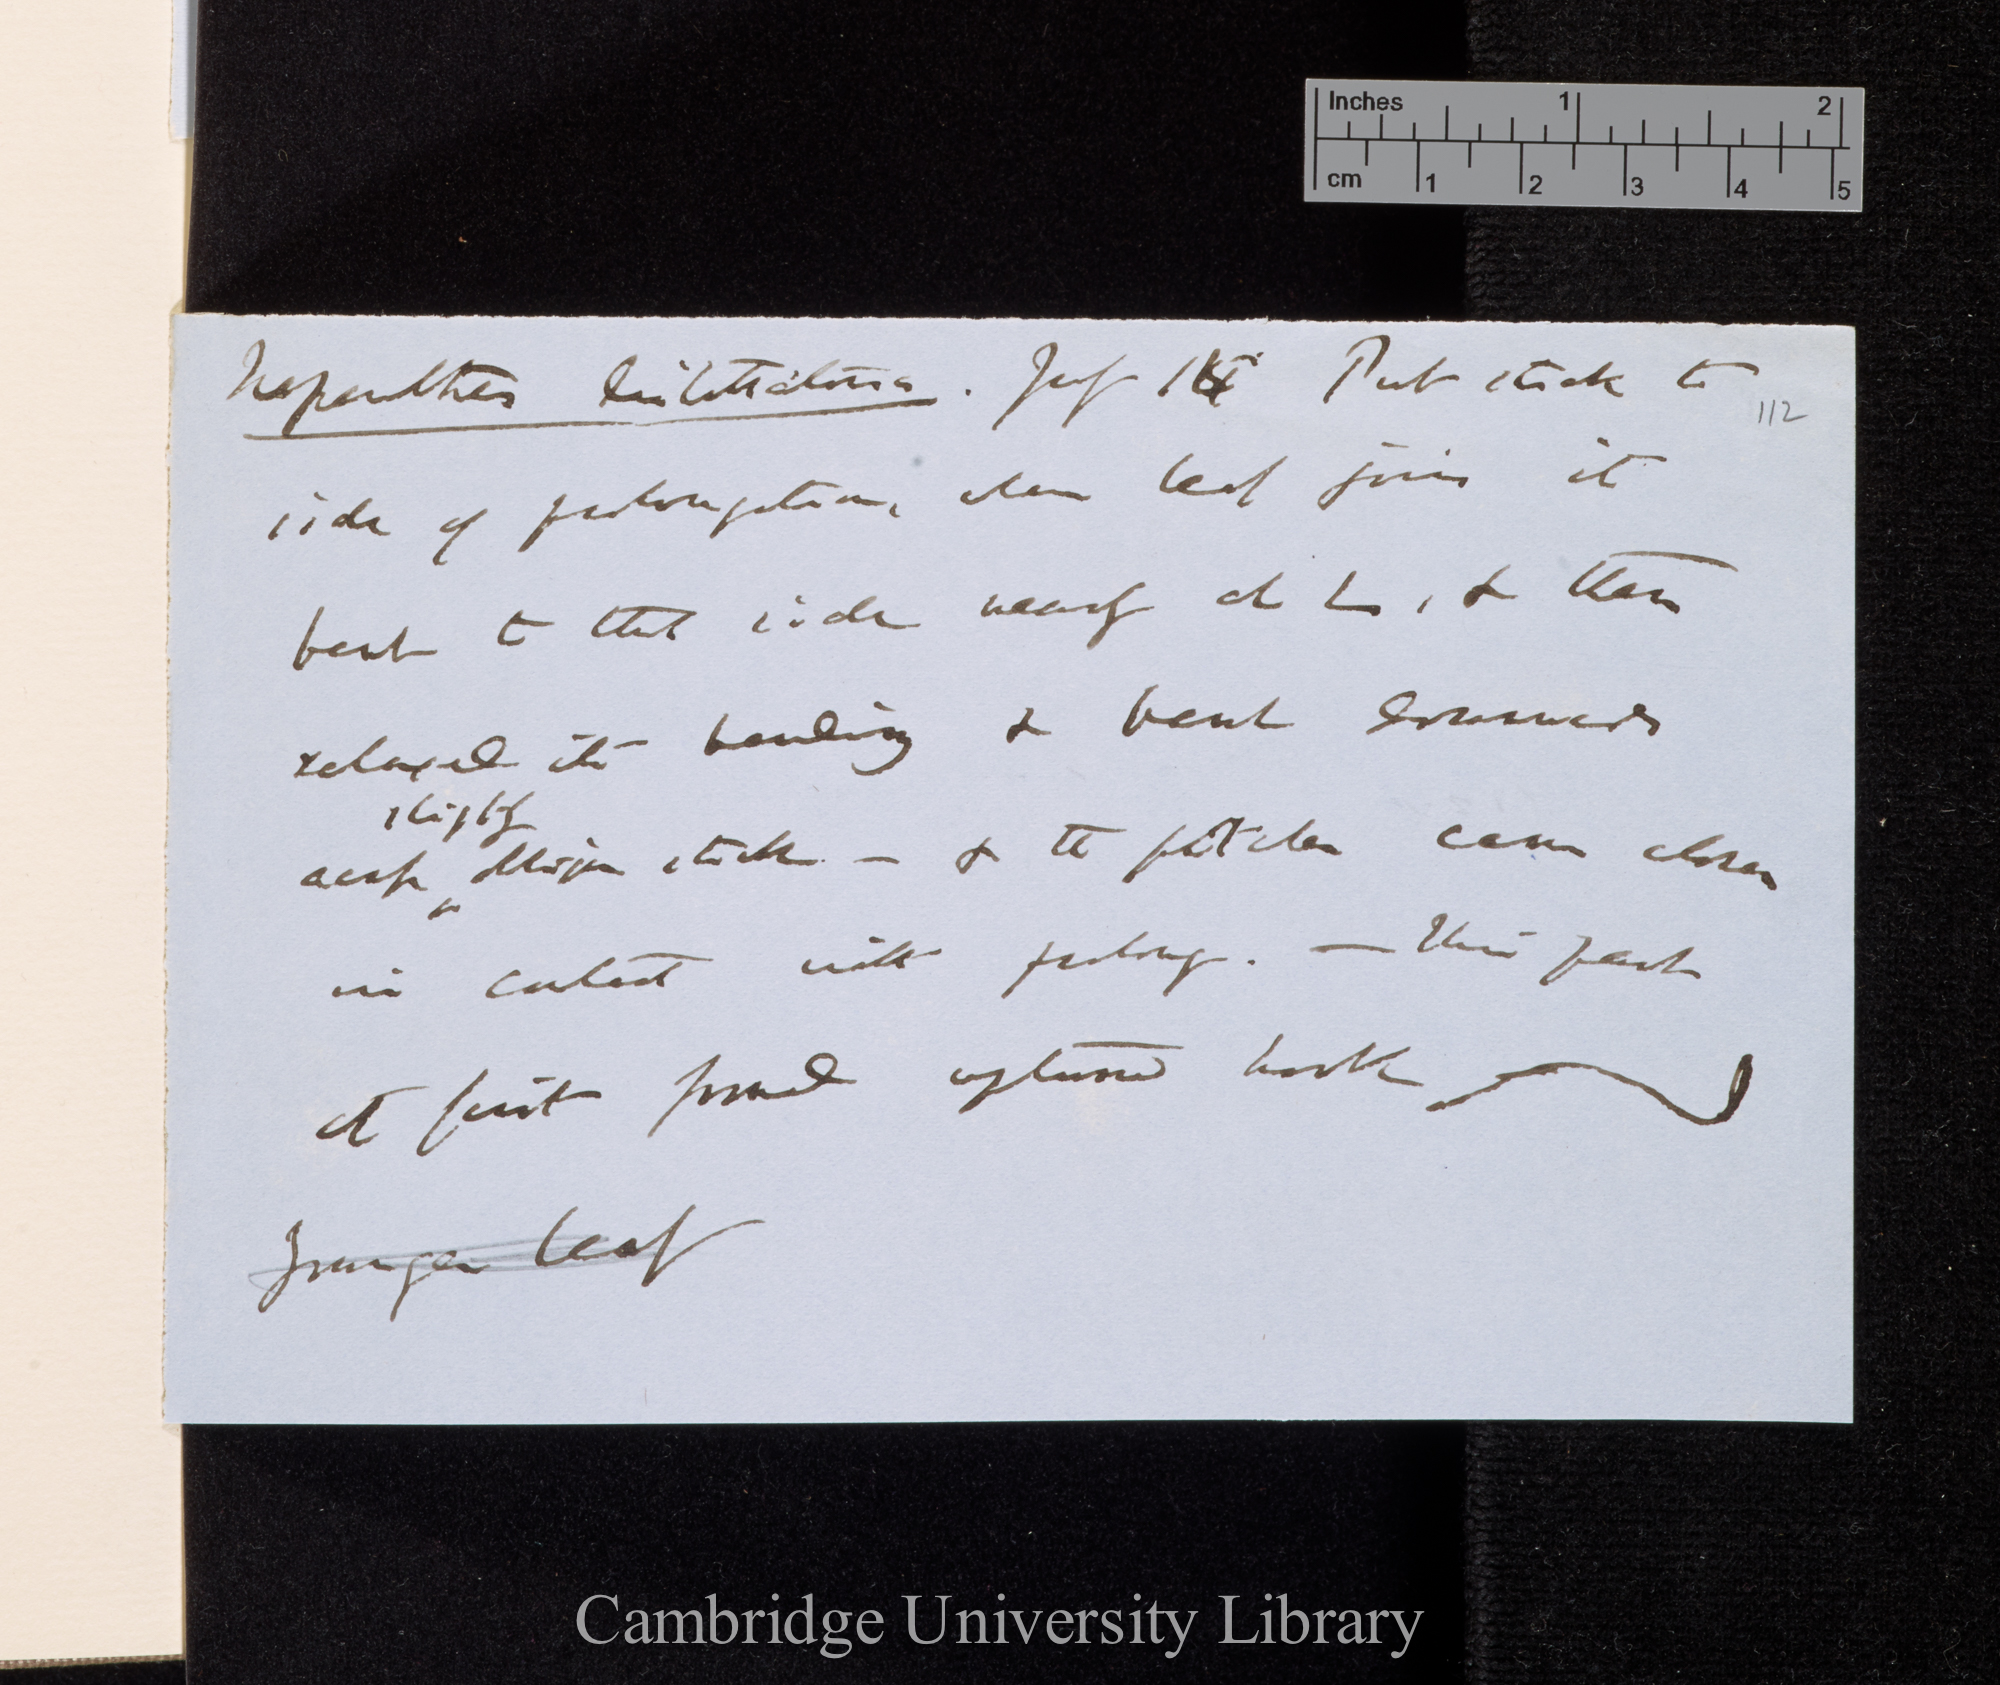 Inches 1 2
cm 1 2 3 4 5
Nepenthes distillatoria. July 16 Put stick to
112
side of prolongation, when leaf joins it
bent to that side nearly at , & then
relaxed its bending & bent downwards
slightly
across stick — & the pitcher came down
in contact with prolong. — This part
at first formed upturned hook
Younger leaf
Cambridge University Library